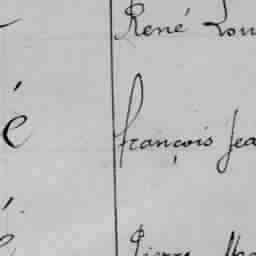 René Lou
é
françois Jea
Pierre